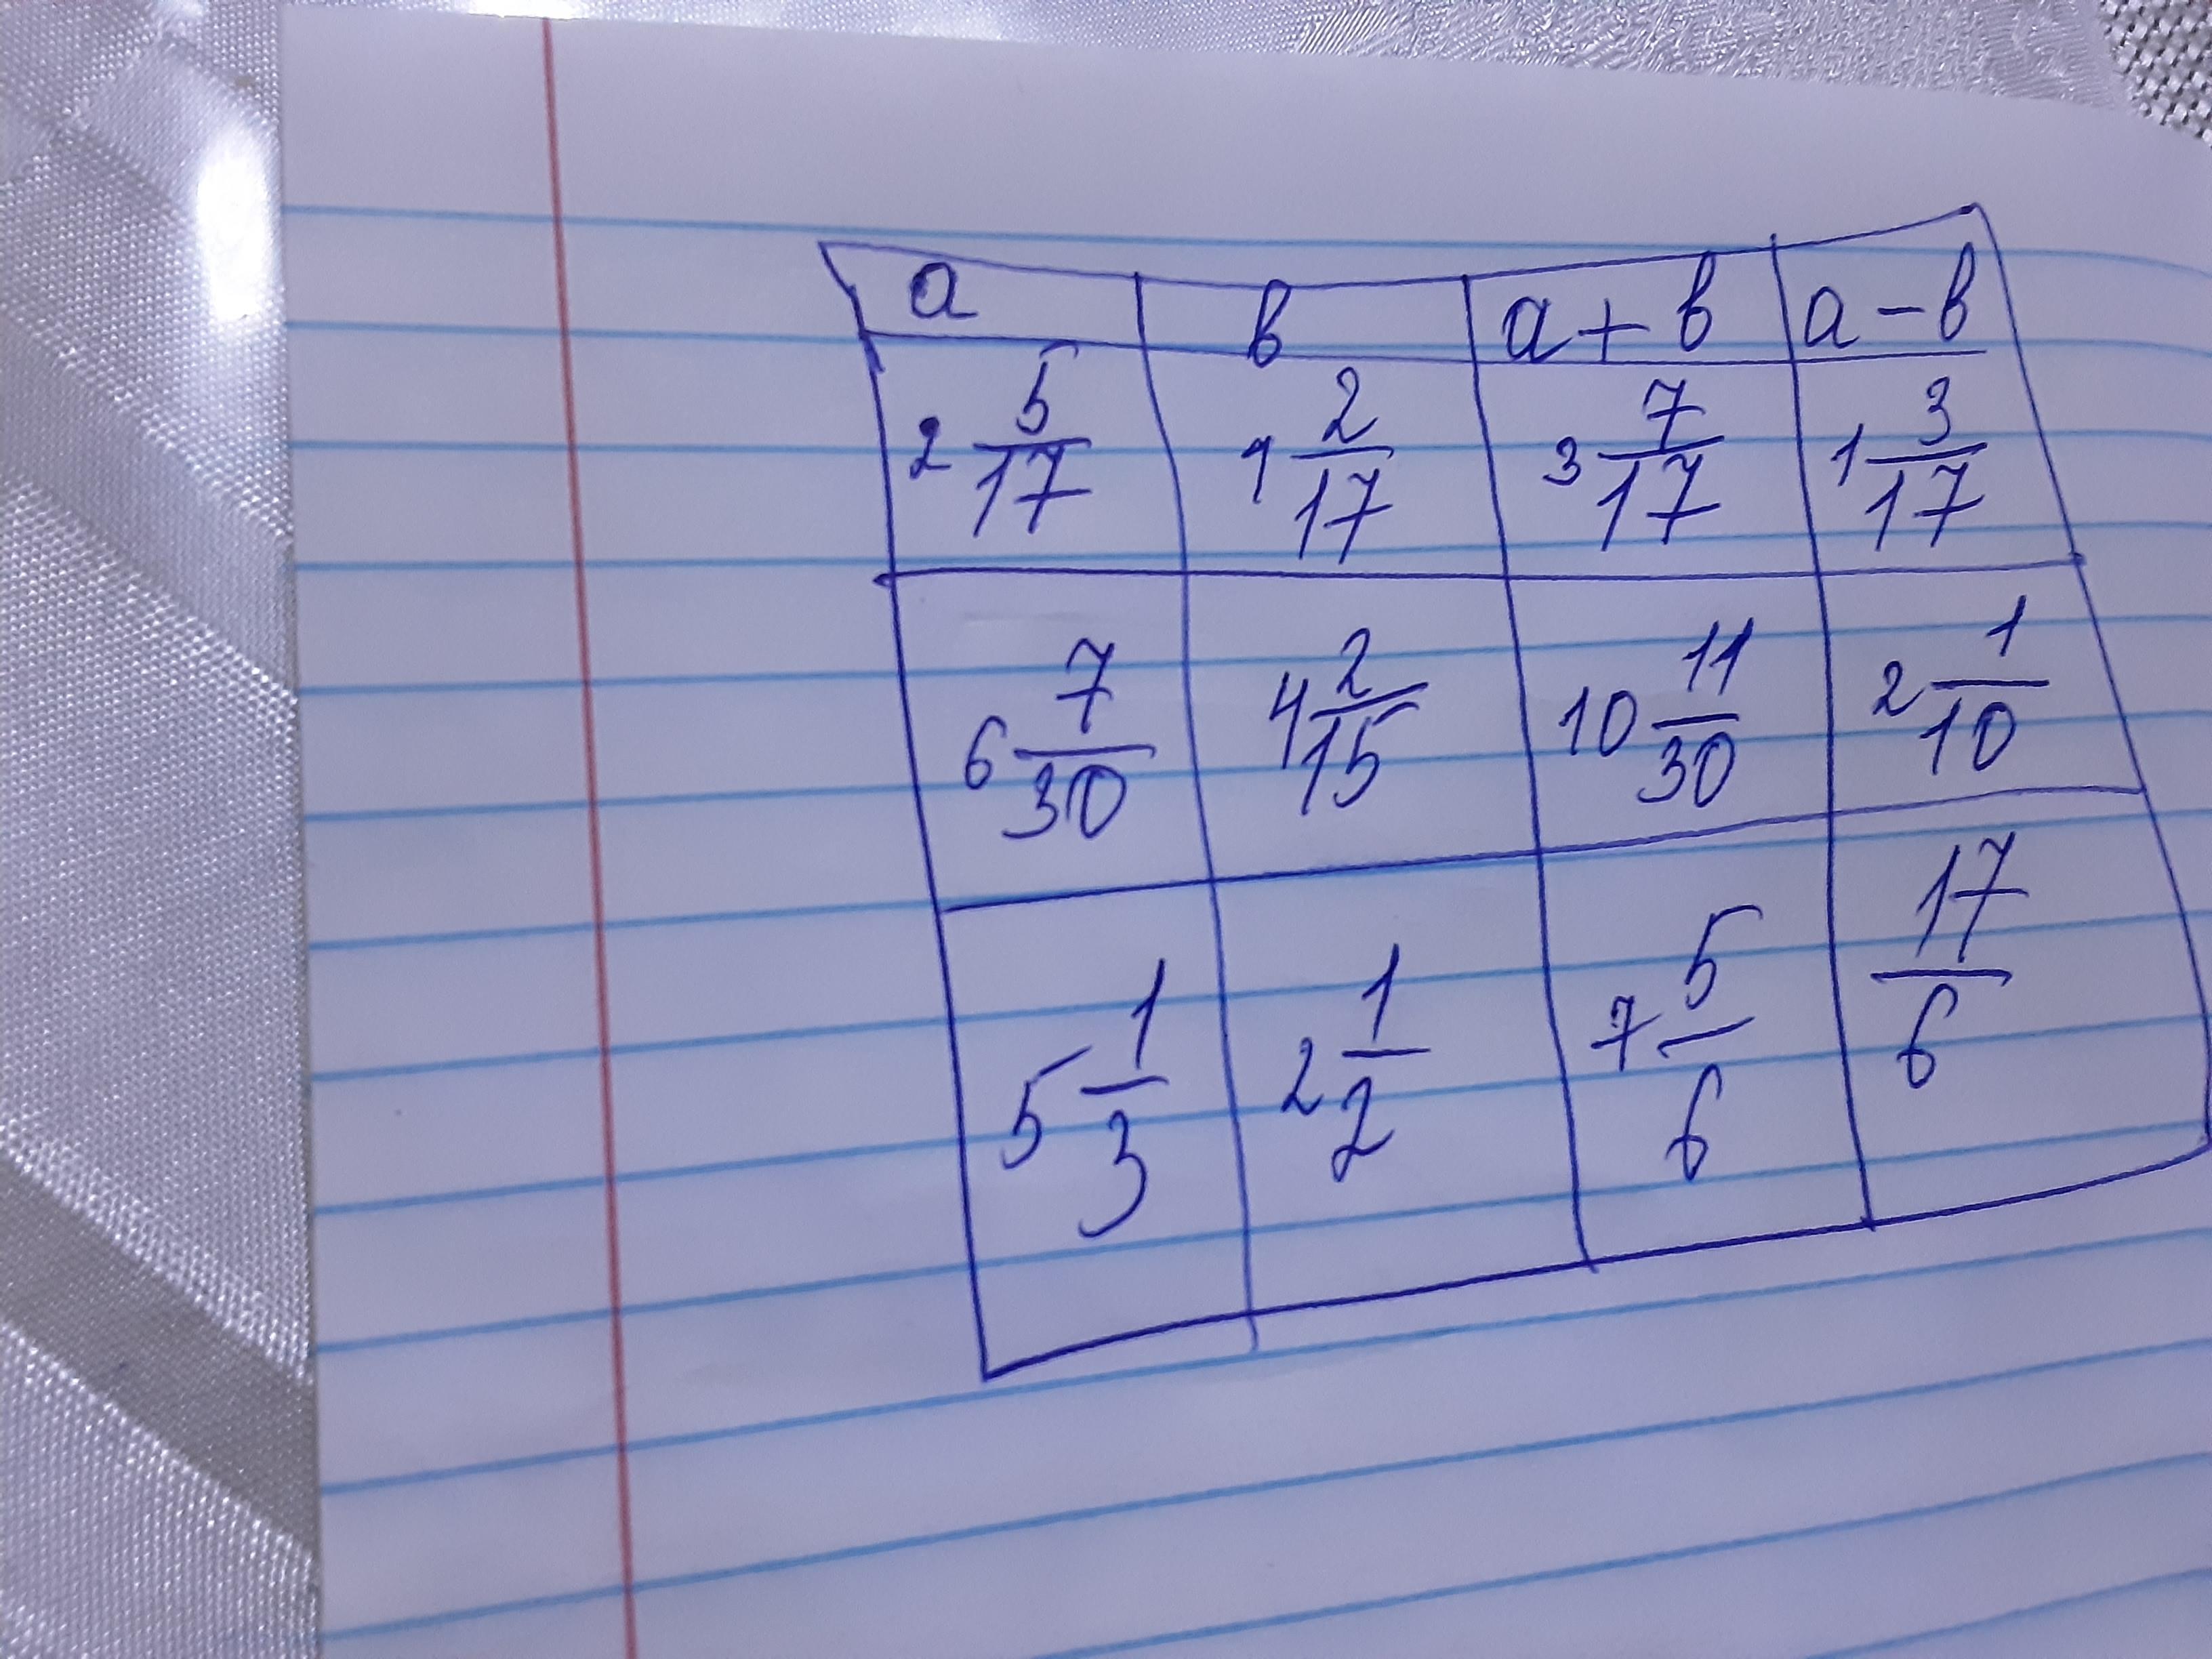 а в а + в а - в
2 5/17 1 2/17 3 7/17 1 3/17
6 7/30 4 2/15 10 11/30 2 1/10
5 1/3 2 1/2 7 5/6 17/6